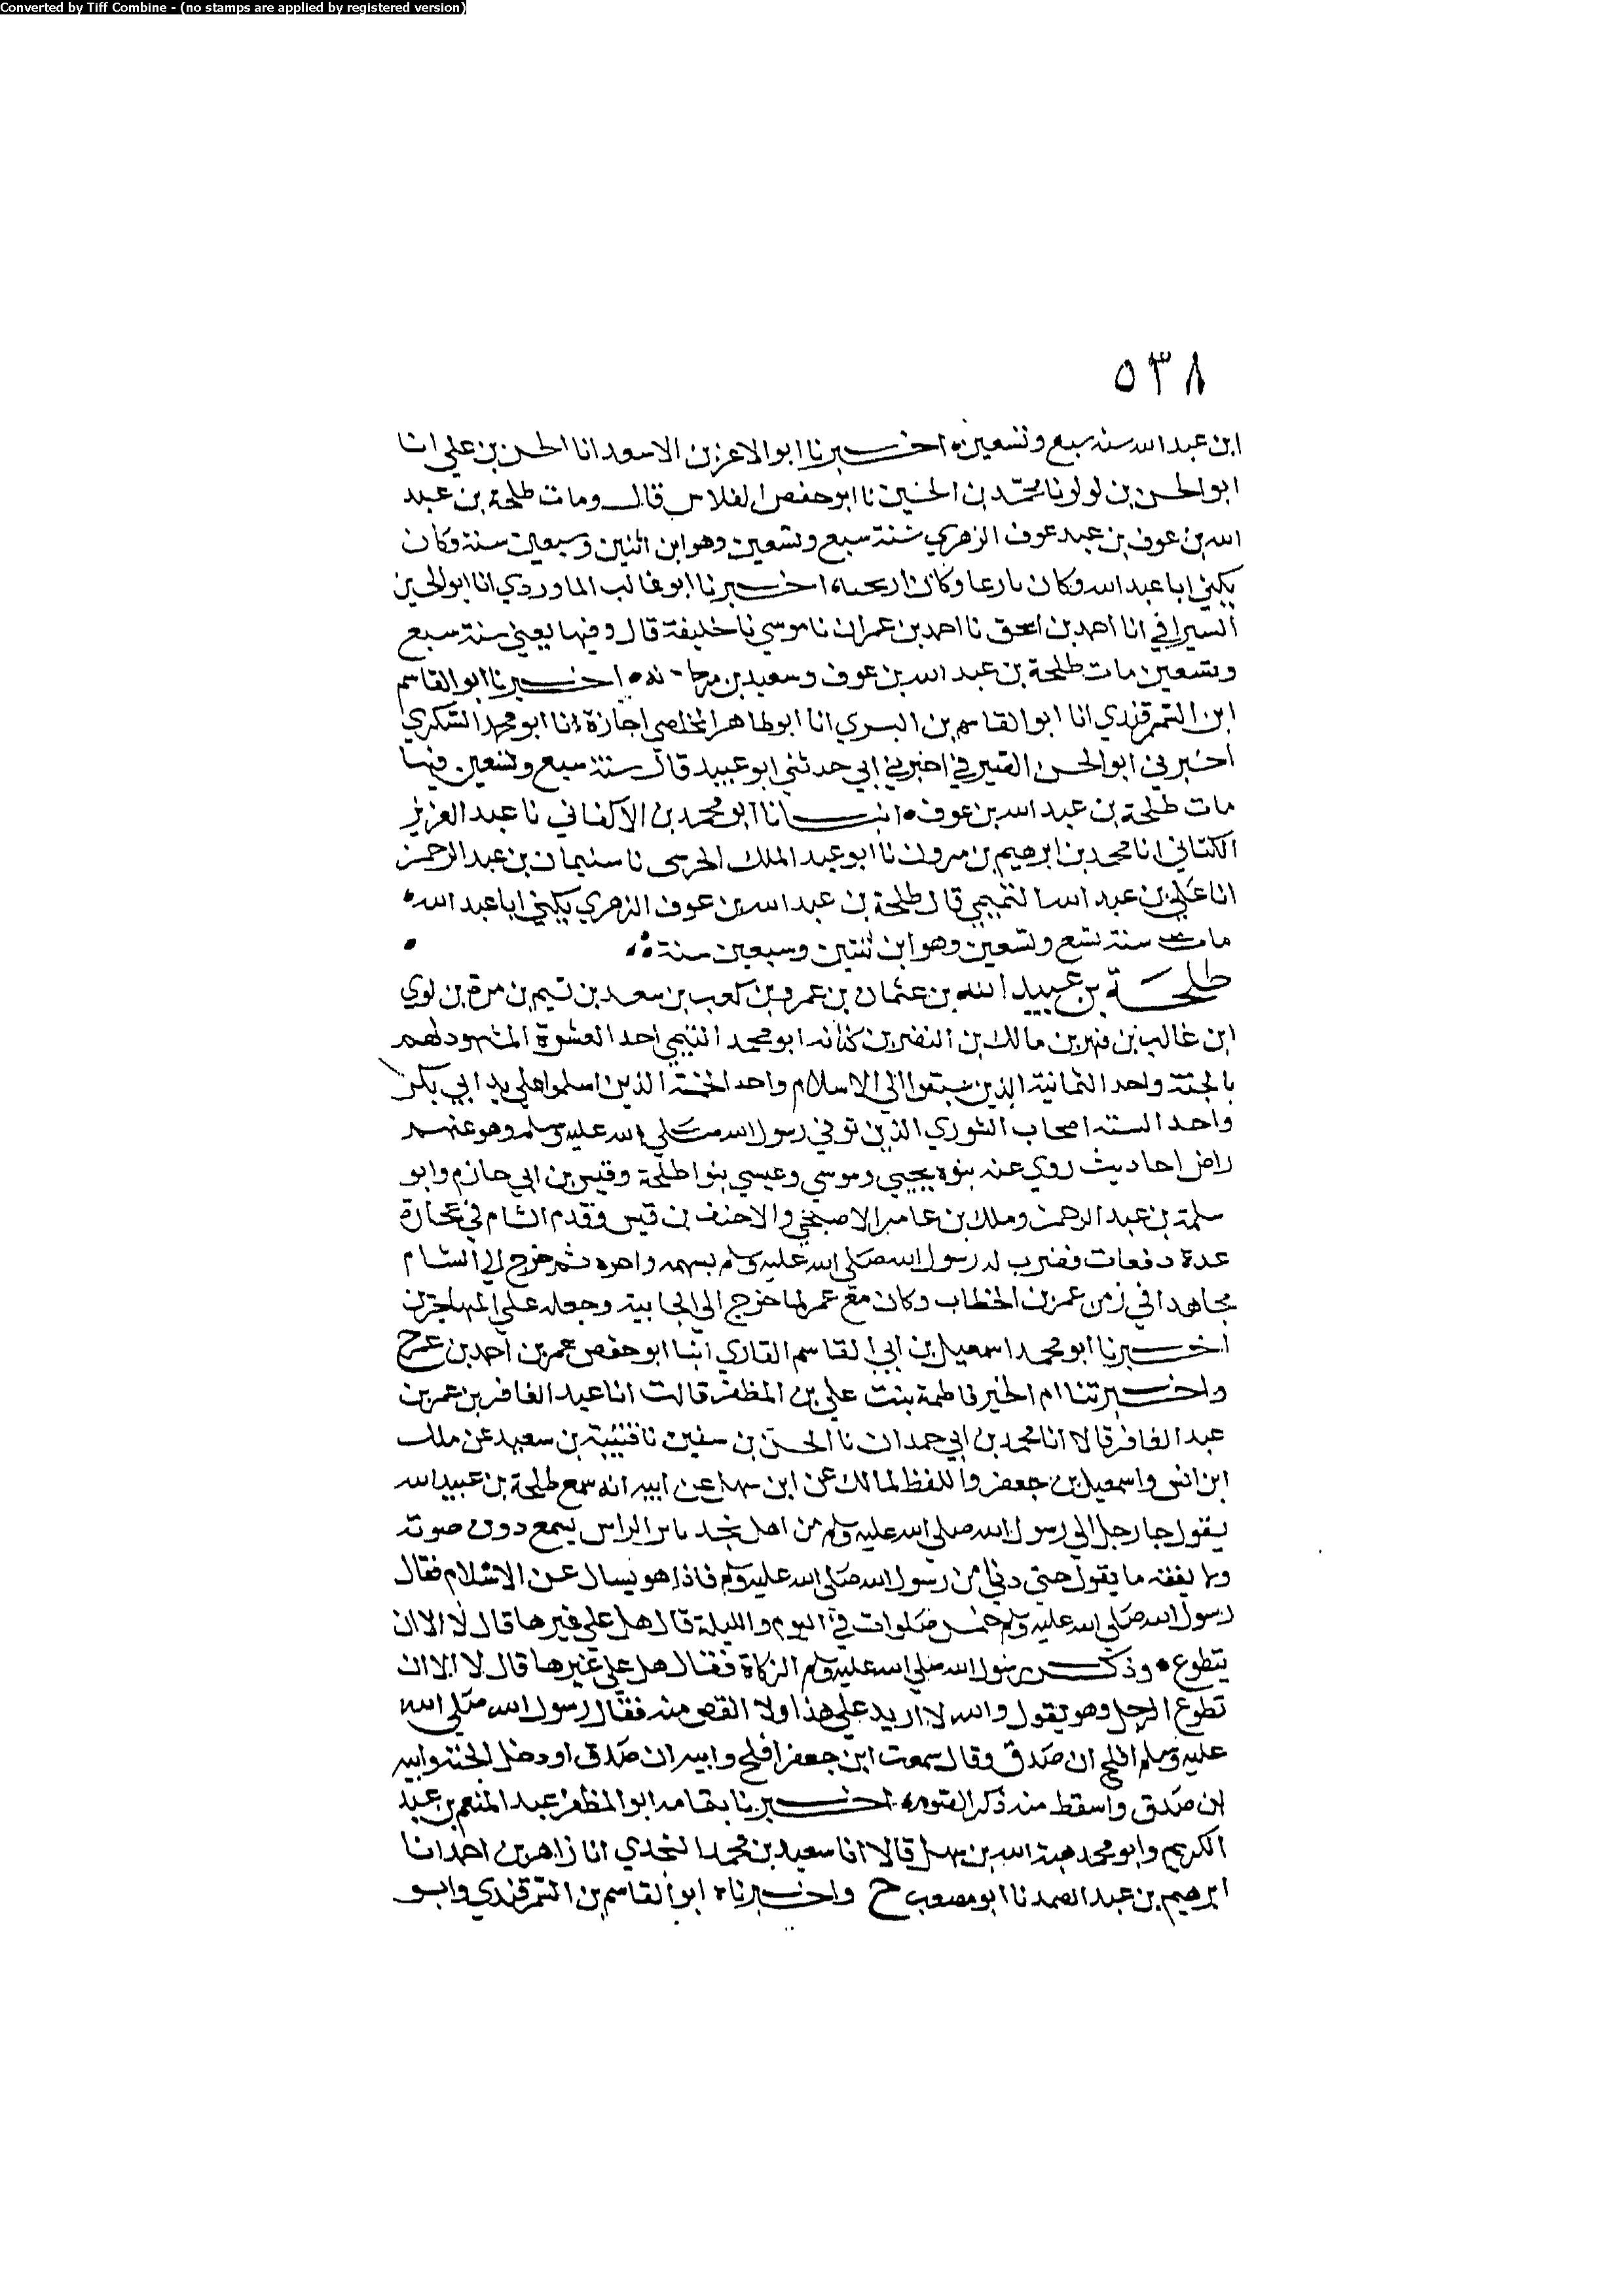 Converted by Tiff Combine - (no stamps are applied by registered version)
٥٣٨
ابن عبد الله سنه سبع وتسعين اخبرنا ابو الاعز بن الاسعد انا الحسن بن علي انا
ابو الحسن بن لولو نا محمد بن الحسين نا ابو حفص الفلاس قال ومات طلحة بن عبد
الله بن عوف بن عبد عوف الزهري سنة سبع وتسعين وهو ابن اثنين وسبعين سنة وكان
يكنى ابا عبد الله وكان اخبرنا ابو غالب الماوردي انا ابو الحسين
السيرافي انا احمد بن اسحق نا احمد بن عمران نا موسى نا خليفة قال وفيها يعني سنة سبع
وتسعين مات طلحة بن عبد الله بن عوف وسعيد بن مرجانه اخبرنا ابو القاسم
ابن السمرقندي انا ابو القاسم بن البسري انا ابو طاهر المخلص اجازة انا ابو محمد السكري
اخبرني ابو الحسن اخبرني ابي حدثني ابو عبيد قال سنة سبع وتسعين فيها
مات طلحة بن عبد الله بن عوف انبانا ابو محمد بن الاكفاني نا عبد العزيز
الكتاني انا محمد بن ابرهيم بن مرون نا ابو عبد الملك نا سليمان بن عبد الرحمن
انا علي بن عبد الله التميمي قال طلحة بن عبد الله بن عوف الزهري يكنى ابا عبد الله
مات سنة تسع وتسعين وهو ابن ثنتين وسبعين سنة
طلحة بن عبيد الله بن عثمان بن عمرو بن كعب بن سعد بن تيم بن مرة بن لوي
ابن غالب بن فهر بن مالك بن النضر بن كنانه ابو محمد التيمي احد العشرة المشهود لهم
بالجنة واحد الثمانية الذين سبقوا الى الاسلام واحد الخمسة الذين اسلموا على يد ابي بكر
واحد الستة اصحاب الشوري الذين توفي رسول الله صلى الله عليه وسلم وهو عنهم
راض احاديث روي عنه بنوه يحيى وموسى وعيسى بنوا طلحة وقيس بن ابي حازم وابو
سلمة بن عبد الرحمن وملك بن عامر الاصبحي والاحنف بن قيس وقدم الشام في تجارة
عدة دفعات فضرب له رسول الله صلى الله عليه وسلم بسهمه واجره ثم خرج الى الشام
مجاهدا في زمن عمر بن الخطاب وكان مع عمر لما خرج الى الجابية وجعله على المهاجرين
اخبرنا ابو محمد اسمعيل بن ابي القاسم القاري انبا ابو حفص عمر بن احمد بن عمر ح
واخبرتنا ام الخير فاطمة بنت علي بن المظفر قالت انا عبد الغافر بن عمر بن
عبد الغافر قالا انا محمد بن ابي حمدان نا الحسن بن سفين نا قتيبة بن سعيد عن ملك
ابن انس واسمعيل بن جعفر واللفظ لمالك عن ابن سهل عن ابيه انه سمع طلحة بن عبيد الله
يقول جا رجل الى رسول الله صلى الله عليه وسلم من اهل نجد ثائر الراس يسمع دوى صوته
ولا يفقه ما يقول حتى دنى من رسول الله صلى الله عليه وسلم فاذا هو يسال عن الاسلام فقال
رسول الله صلى الله عليه وسلم خمس صلوات في اليوم والليلة قال هل علي غيرها قال لا الا ان
يتطوع وذكر رسول الله صلى الله عليه وسلم الزكاة فقال هل علي غيرها قال لا الا ان
تطوع الرجل وهو يقول والله لا ازيد على هذا ولا انقص منه فقال رسول الله صلى الله
عليه وسلم افلح ان صدق وقال سمعت ابن جعفر افلح وابيه ان صدق او دخل الجنة وابيه
ان صدق واسقط منه ذكر اخبرنا ابو المظفر عبد المنعم بن عبد
الكريم وابو محمد هبة الله بن سهل قالا انا سعيد بن محمد انا زاهر بن احمد انا
ابرهيم بن عبد الصمد نا ابو مصعب ح واخبرناه ابو القاسم بن السمرقندي وابو